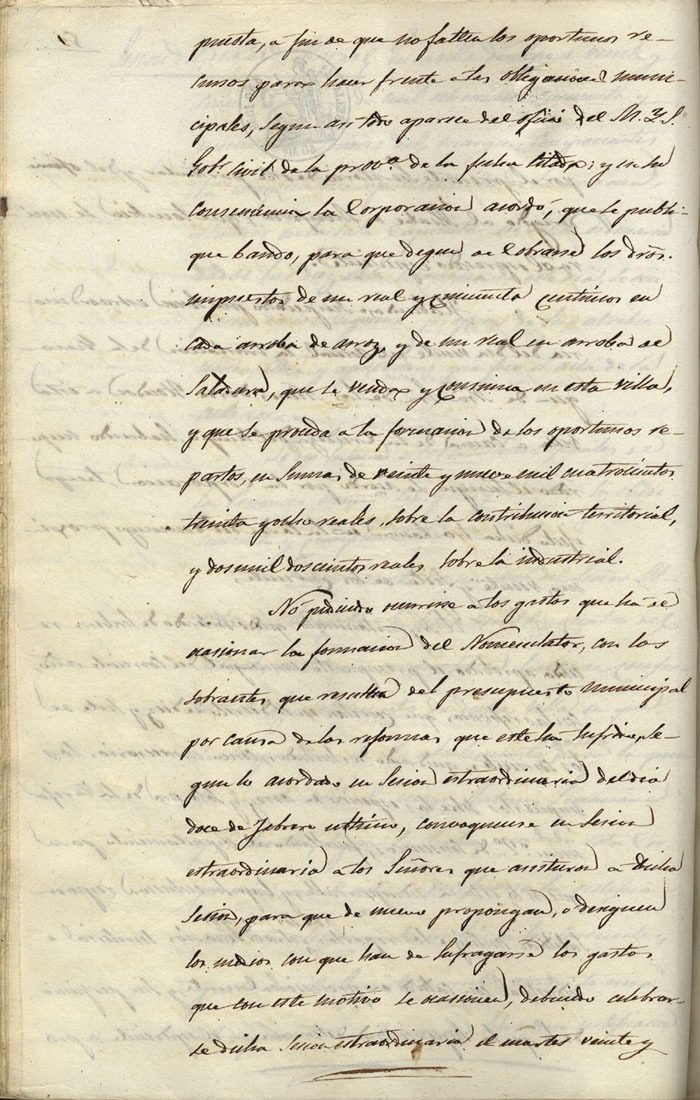 puesta, a fin de que no falten los oportunos re-
cursos para hacer frente a las obligaciones muni-
cipales, segun asi todo aparece del oficio del M. Y. S.
Gobr. Civil de la prova. de la fecha citada: y en su
consecuencia la Corporacion acordó, que se publi-
que bando, para que desde a cobrarse los dros.
impuestos de un real y cincuenta centimos en
cada arroba de arroz, y de un real en arroba de
Saladura, que se venda y consuma en esta villa,
y que se proceda a la formacion de los oportunos re-
partos, en sumas de veinte y nueve mil cuatrocientos
treinta y ocho reales, sobre la contribucion territorial,
y dos mil doscientos reales sobre la industrial.
No pudiendo ocurrirse a los gastos que ha de
ocasionar la formacion del Nomenclator, con los
sobrantes que resultan del presupuesto municipal
por causa de las reformas que este ha sufrido, se-
gun lo acordado en Sesion estraordinaria del dia
doce de Febrero ultimo, convoquense en Sesion
estraordinaria a los Señores que asistieron a dicha
Sesion, para que de nuevo propongan, o designen
los medios con que han de sufragarse los gastos
que con este motivo se ocasionen, debiendo celebrar-
se dicha sesion estraordinaria el martes veinte y